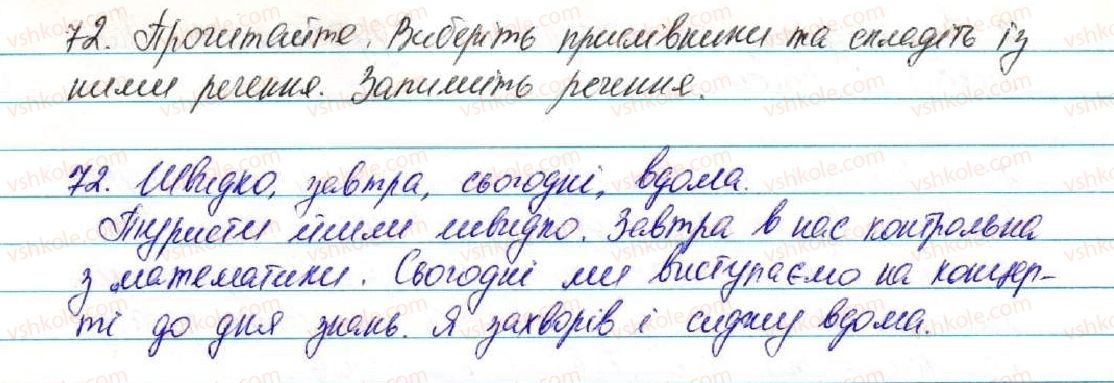 72. Прочитайте. Виберіть прислівники та складіть із
ними речення. Запишіть речення.
72. Швидко, завтра, сьогодні, вдома.
Туристи йшли швидко. Завтра в нас контрольна
з математики. Сьогодні ми виступаємо на концер-
ті до дня знань. Я захворів і сиджу вдома.